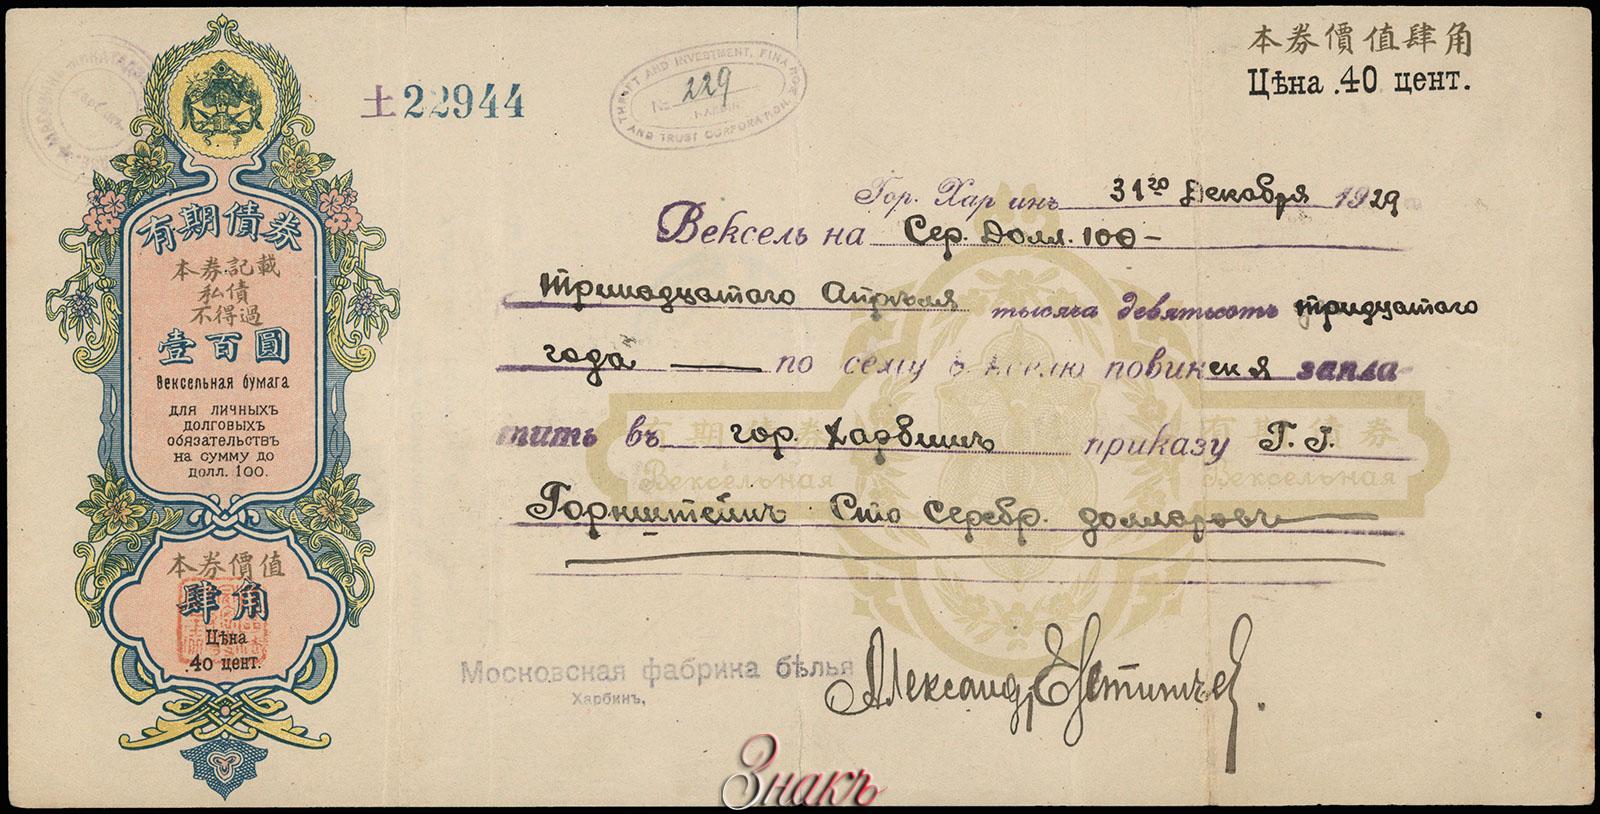 有期債券
本券記載
私債
不得過
壹百圓
Вексельная бумага
для личныхъ
долговыхъ
обязательствъ
на сумму до
долл. 100.
本券價值
肆角
Цѣна
.40 цент.
土22944
THRIFT AND INVESTMENT, FINANCE
No 229
AND TRUST CORPORATION.
本券價值肆角
Цѣна .40 цент.
Гор. Харбинъ 31го Декабря 1929
Вексель на Сер. Долл. 100-
Тринадцатаго Апрѣля тысяча девятьсотъ тридцатого
года — по сему векселю повинен запла
тить въ гор. Харбинъ приказу Г. Г.
Горнштейнъ Сто серебр. долларовъ
有期債券
有期債券
Вексельная
Вексельная
Московская фабрика бѣлья
Харбинъ,
Александр
Знакъ